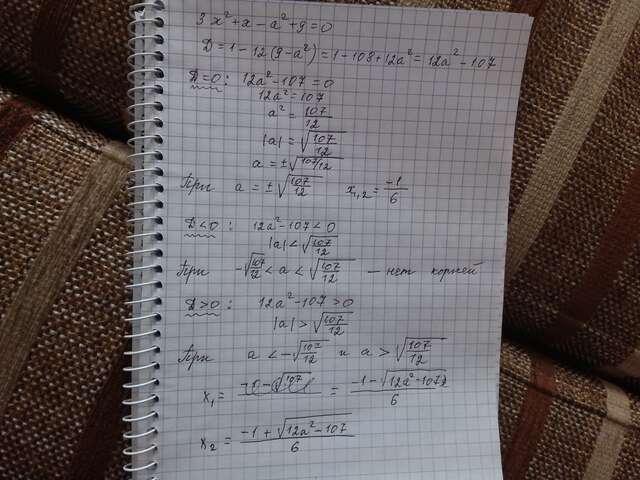 3x² + x - a² + 9 = 0
D = 1 - 12(9 - a²) = 1 - 108 + 12a² = 12a² - 107
D = 0: 12a² - 107 = 0
12a² = 107
a² = 107/12
|a| = √(107/12)
a = ±√(107/12)
При a = ±√(107/12) x₁,₂ = -1/6
D < 0: 12a² - 107 < 0
|a| < √(107/12)
При -√(107/12) < a < √(107/12) — нет корней
D > 0: 12a² - 107 > 0
|a| > √(107/12)
При a < -√(107/12) и a > √(107/12)
x₁ = = (-1 - √(12a² - 107))/6
x₂ = (-1 + √(12a² - 107))/6